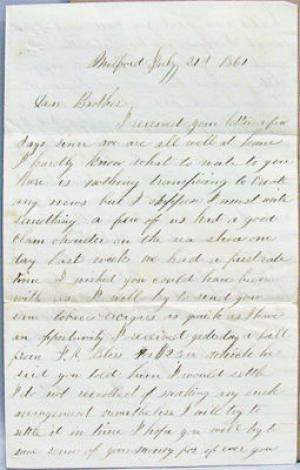 Milford July 21st 1861
Dear Brother
I received your letter a few
days since we are all well at home
I hardly know what to write to you
there is nothing transpiring to create
any news but I suppose I must write
something. a few of us had a good
clam chowder on the sea shore one
day last week we had a first rate
time I wished you could have been
with us. I will try to send you
some tobacco & cigars as quick as I have
an opportunity I received yesterday a bill
from F. R. Bliss which he
said you told him I would settle
I do not recollect of making any such
arrangement nevertheless I will try to
settle it in time I hope you will try to
save some of your money for if ever you